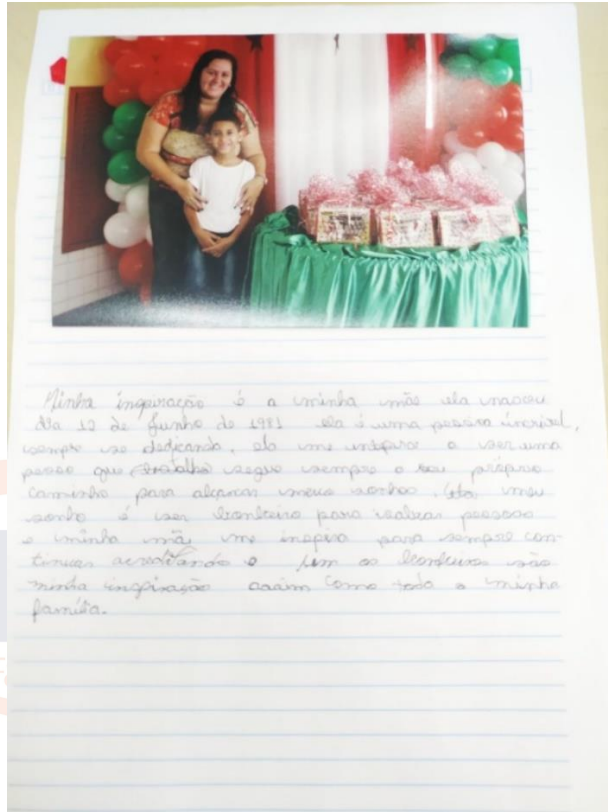 Minha inspiração é a minha mãe ela nasceu
dia 12 de Junho de 1981 ela é uma pessoa incrível,
sempre se dedicando, ela me inspira a ser uma
pessoa que trabalha segue sempre o seu próprio
caminho para alçancar meus sonhos. meu
sonho é ser bombeiro para salvar pessoas
e minha mãe me inspira para sempre con-
tinuar acreditando e sim os bombeiros são
minha inspiração assim como toda a minha
família.